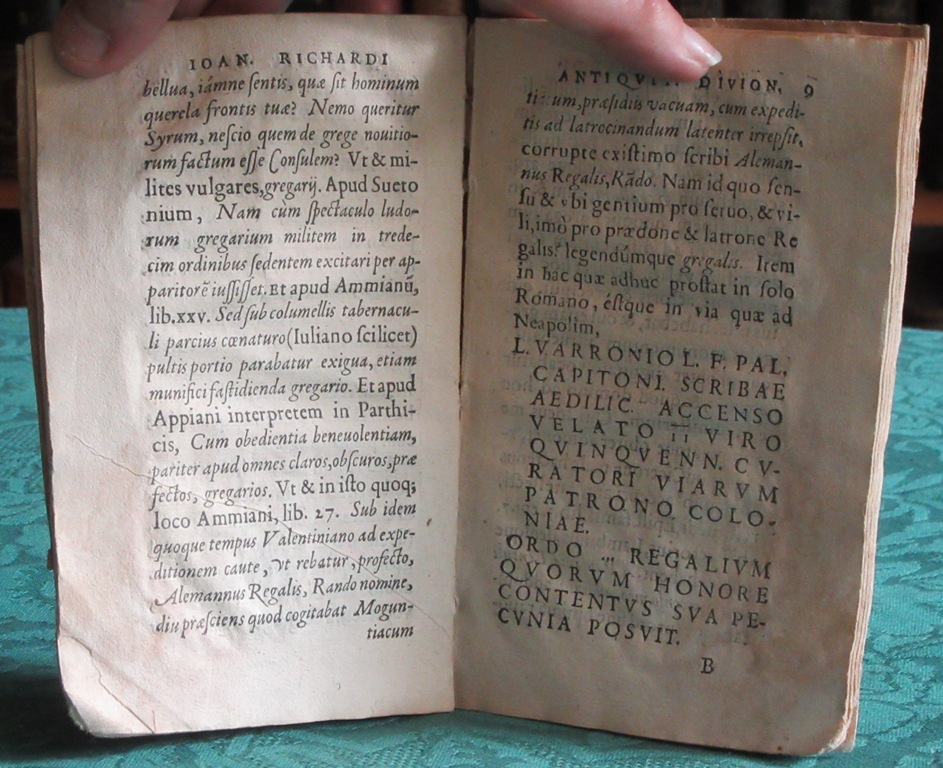 IOAN. RICHARDI
bellua, iámne sentis, quæ sit hominum
querela frontis tuæ? Nemo queritur
Syrum, nescio quem de grege nouitio-
rum factum esse Consulem? Vt & mi-
lites vulgares, gregarij. Apud Sueto
nium, Nam cum spectaculo ludo-
rum gregarium militem in trede-
cim ordinibus sedentem excitari per ap-
paritorē iussisset. Et apud Ammianū,
lib. xxv. Sed sub columellis tabernacu-
li parcius cœnaturo (Iuliano scilicet)
pultis portio parabatur exigua, etiam
munifici fastidienda gregario. Et apud
Appiani interpretem in Parthi-
cis, Cum obedientia beneuolentiam,
pariter apud omnes claros, obscuros, præ
fectos, gregarios. Vt & in isto quoq;
loco Ammiani, lib. 27. Sub idem
quoque tempus Valentiniano ad expe-
ditionem caute, vt rebatur, profecto,
Alemannus Regalis, Rando nomine,
diu præsciens quod cogitabat Mogun-
tiacum
DIVION. 9
præsidiis vacuam, cum expedi-
tis ad latrocinandum latenter irrepsit,
corrupte existimo scribi Aleman-
nus Regalis, Rādo. Nam id quo sen-
su & vbi gentium pro seruo, & vi-
li, imò pro prædone & latrone Re
galis? legendúmque gregalis. Item
in hac quæ adhuc prostat in solo
Romano, éstque in via quæ ad
Neapolim,
L. VARRONIO L. F. PAL.
CAPITONI. SCRIBAE
AEDILIC. ACCENSO
VELATO II VIRO
QVINQVENN. CV-
RATORI VIARVM
PATRONO COLO-
NIAE.
ORDO .. REGALIVM
QVORVM HONORE
CONTENTVS SVA PE-
CVNIA POSVIT.
B